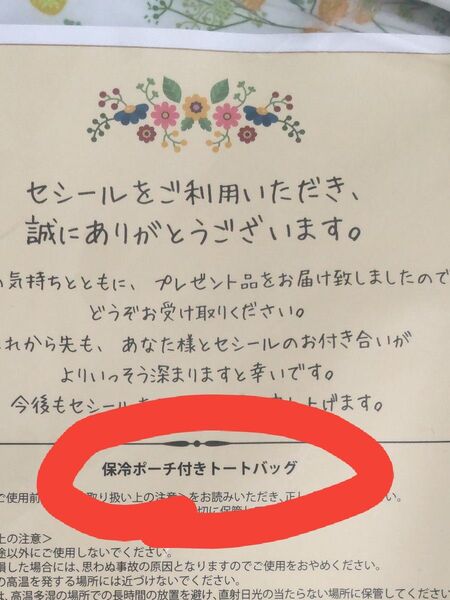 セシールをご利用いただき、
誠にありがとうございます。
気持ちとともに、プレゼント品をお届け致しましたので
どうぞお受け取りください。
れから先も、あなた様とセシールのお付き合いが
よりいっそう深まりますと幸いです。
今後もセシール 上げます。
保冷ポーチ付きトートバッグ
ご使用前 取り扱い上の注意>をお読みいただき、正し ください。
切に保管し
上の注意>
途以外にご使用しないでください。
損した場合には、思わぬ事故の原因となりますのでご使用をおやめください。
の高温を発する場所には近づけないでください。
は、高温多湿の場所での長時間の放置を避け、直射日光の当たらない場所に保管してください